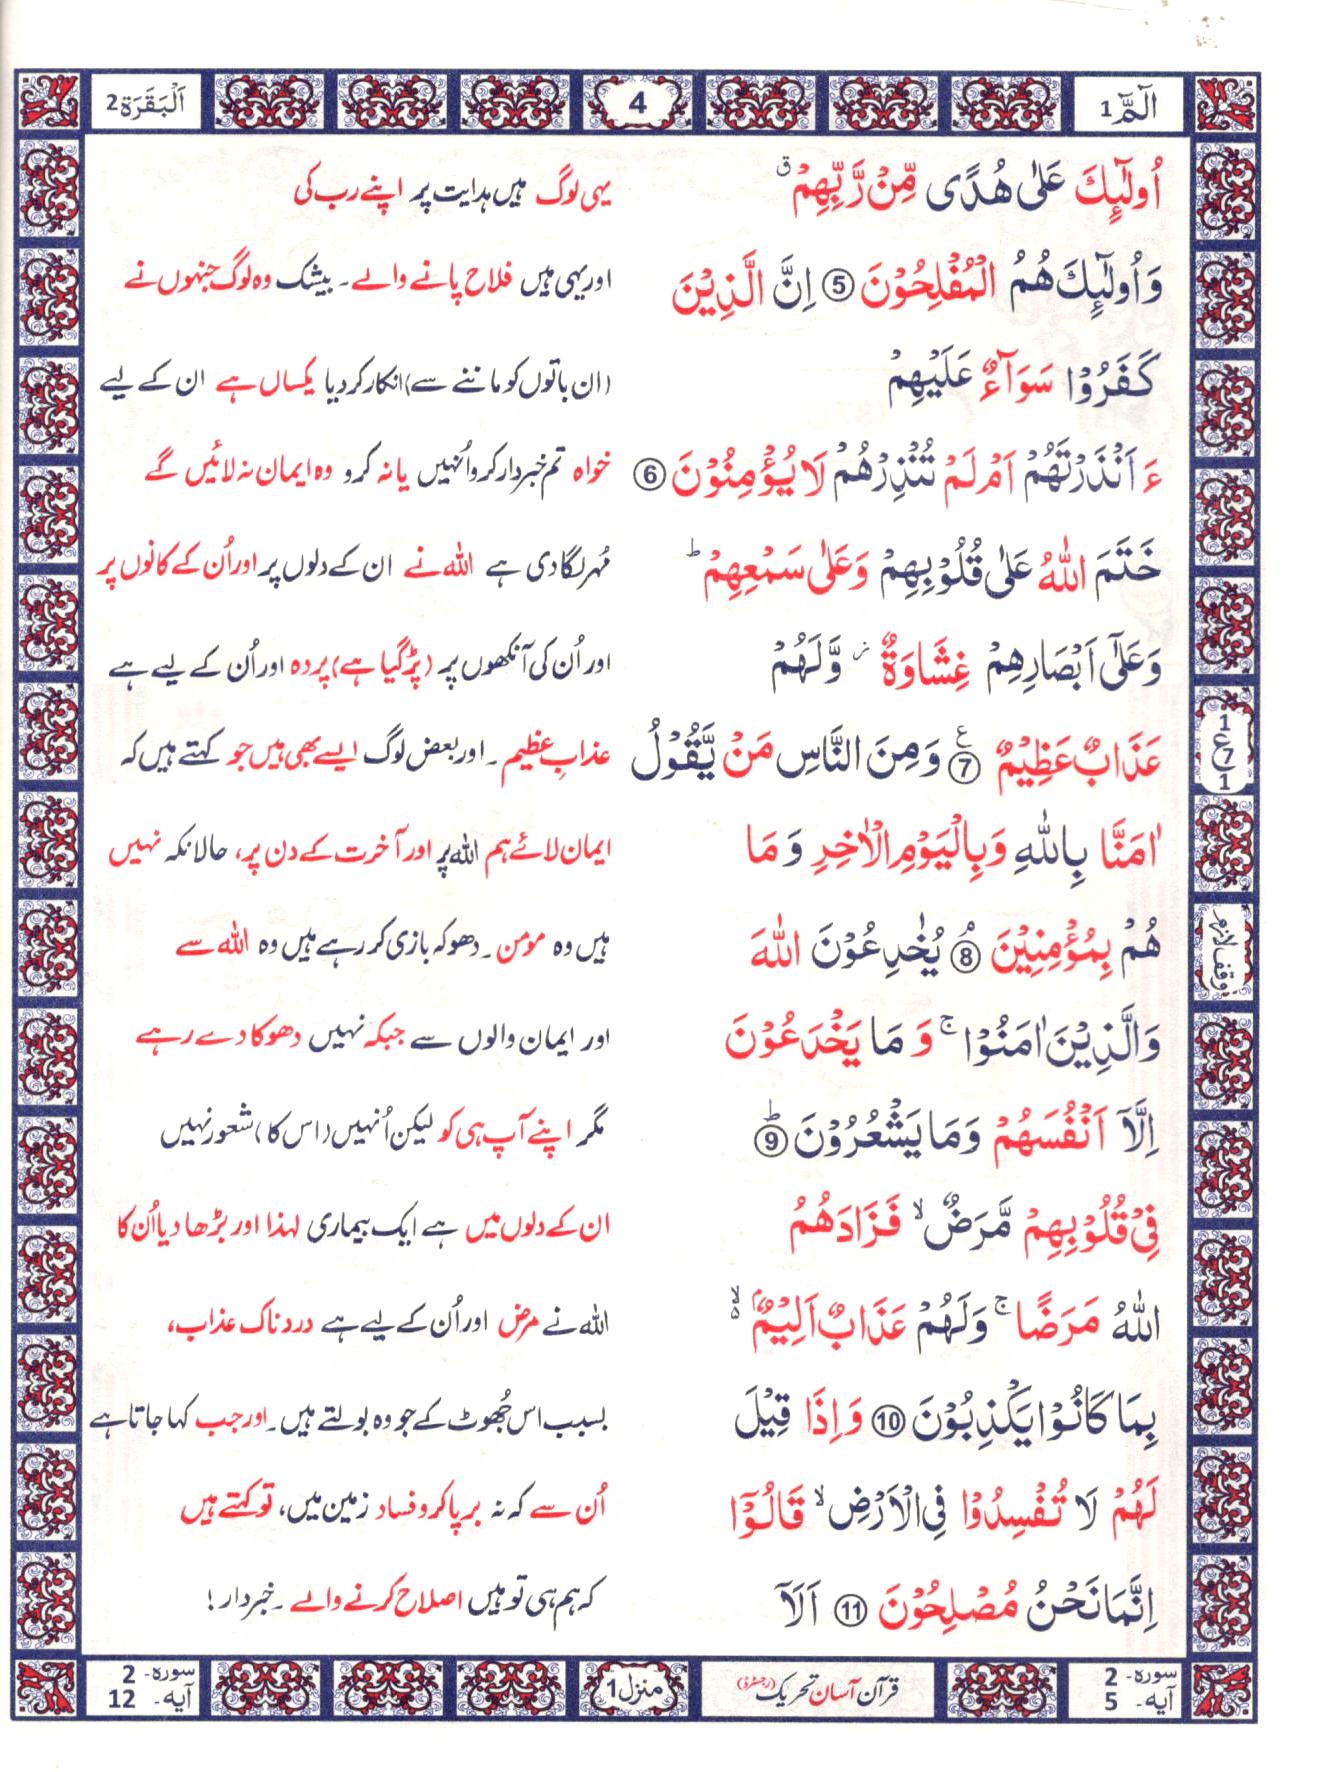 الٓمّٓ 1
4
اَلْبَقَرَة 2
اُولٰٓئِكَ عَلٰی هُدًی مِّنْ رَّبِّهِمْ ۗ یہی لوگ ہیں ہدایت پر اپنے رب کی
وَاُولٰٓئِكَ هُمُ الْمُفْلِحُوْنَ ⑤ اِنَّ الَّذِیْنَ اور یہی ہیں فلاح پانے والے۔ بیشک وہ لوگ جنہوں نے
كَفَرُوْا سَوَآءٌ عَلَیْهِمْ (ان باتوں کو ماننے سے) انکار کردیا یکساں ہے ان کے لیے
ءَ اَنْذَرْتَهُمْ اَمْ لَمْ تُنْذِرْهُمْ لَا یُؤْمِنُوْنَ ⑥ خواہ تم خبردار کرو اُنہیں یا نہ کرو وہ ایمان نہ لائیں گے
خَتَمَ اللّٰهُ عَلٰی قُلُوْبِهِمْ وَعَلٰی سَمْعِهِمْ ؕ مُہر لگا دی ہے اللہ نے ان کے دلوں پر اور اُن کے کانوں پر
وَعَلٰۤی اَبْصَارِهِمْ غِشَاوَةٌ ز وَّلَهُمْ اور اُن کی آنکھوں پر (پڑ گیا ہے) پردہ اور اُن کے لیے ہے
عَذَابٌ عَظِیْمٌ ⑦ ع وَمِنَ النَّاسِ مَنْ یَّقُوْلُ عذابِ عظیم۔ اور بعض لوگ ایسے بھی ہیں جو کہتے ہیں کہ
1 ع 7 1
اٰمَنَّا بِاللّٰهِ وَبِالْیَوْمِ الْاٰخِرِ وَ مَا ایمان لائے ہم اللہ پر اور آخرت کے دن پر، حالانکہ نہیں
هُمْ بِمُؤْمِنِیْنَ ⑧ۘ یُخٰدِعُوْنَ اللّٰهَ ہیں وہ مومن۔ دھوکہ بازی کر رہے ہیں وہ اللہ سے
وقف لازم
وَالَّذِیْنَ اٰمَنُوْا ۚ وَ مَا یَخْدَعُوْنَ اور ایمان والوں سے جبکہ نہیں دھوکا دے رہے
اِلَّاۤ اَنْفُسَهُمْ وَمَا یَشْعُرُوْنَ ⑨ؕ مگر اپنے آپ ہی کو لیکن اُنہیں (اس کا) شعور نہیں
فِیْ قُلُوْبِهِمْ مَّرَضٌ ۙ فَزَادَهُمُ ان کے دلوں میں ہے ایک بیماری لہذا اور بڑھا دیا اُن کا
اللّٰهُ مَرَضًا ۚ وَلَهُمْ عَذَابٌ اَلِیْمٌۢ ۙ۬ اللہ نے مرض اور اُن کے لیے ہے دردناک عذاب،
بِمَا كَانُوْا یَكْذِبُوْنَ ⑩ وَاِذَا قِیْلَ بسبب اس جُھوٹ کے جو وہ بولتے ہیں۔ اور جب کہا جاتا ہے
لَهُمْ لَا تُفْسِدُوْا فِی الْاَرْضِ ۙ قَالُوْۤا اُن سے کہ نہ برپا کرو فساد زمین میں، تو کہتے ہیں
اِنَّمَا نَحْنُ مُصْلِحُوْنَ ⑪ اَلَاۤ کہ ہم ہی تو ہیں اصلاح کرنے والے۔ خبردار!
سورہ- 2
آیہ- 5
قرآن آسان تحریک (رجسٹرڈ)
منزل 1
سورہ- 2
آیہ- 12